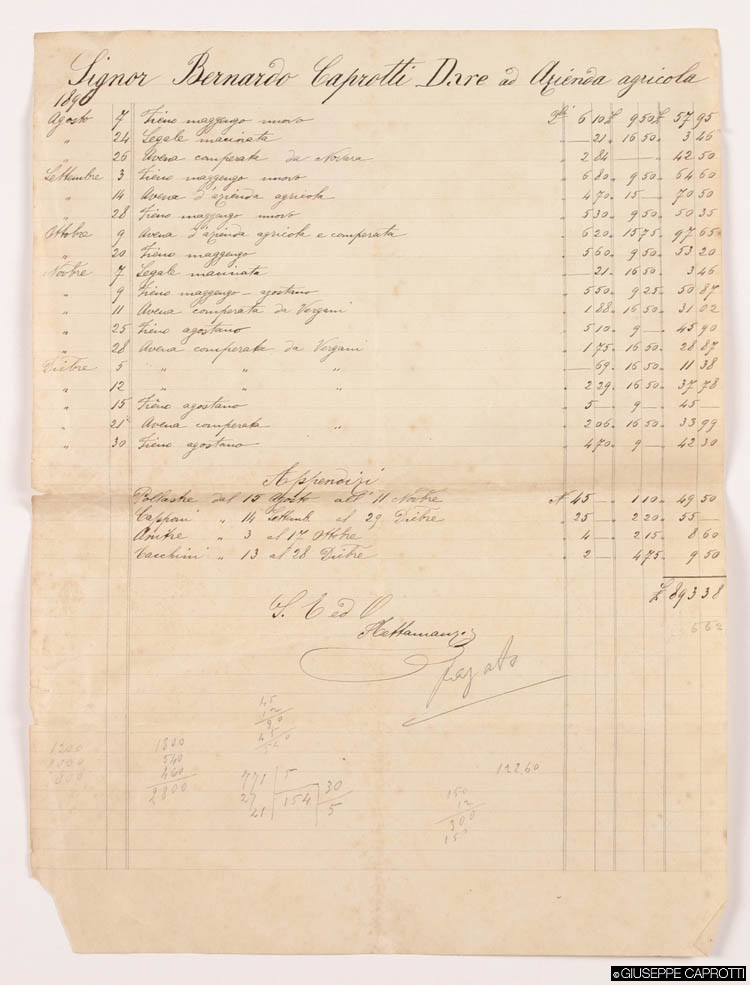 Signor Bernardo Caprotti Dare ad Azienda agricola
1890
Agosto 7 Fieno maggengo nuovo Qli 6 10 £ 9 50 £ 57 95
" 24 Segale macinata " — 21 " 16 50 " 3 46
" 26 Avena comperata da Novara " 2 84 — " 42 50
Settembre 3 Fieno maggengo nuovo " 6 80 " 9 50 " 64 60
" 14 Avena d'azienda agricola " 4 70 " 15 — " 70 50
" 28 Fieno maggengo nuovo " 5 30 " 9 50 " 50 35
Ottobre 9 Avena d'azienda agricola e comperata " 6 20 " 15 75 " 97 65
" 20 Fieno maggengo " 5 60 " 9 50 " 53 20
Novbre 7 Segale macinata " — 21 " 16 50 " 3 46
" 9 Fieno maggengo - agostano " 5 50 " 9 25 " 50 87
" 11 Avena comperata da Vergani " 1 88 " 16 50 " 31 02
" 25 Fieno agostano " 5 10 " 9 — " 45 90
" 28 Avena comperata da Vergani " 1 75 " 16 50 " 28 87
Diebre 5 " " " " — 69 " 16 50 " 11 38
" 12 " " " " 2 29 " 16 50 " 37 78
" 15 Fieno agostano " 5 — " 9 — " 45 —
" 21 Avena comperata " " 2 06 " 16 50 " 33 99
" 30 Fieno agostano " 4 70 " 9 — " 42 30
Appendizi
Pollastre dal 15 Agosto all' 11 Novbre N 45 — 1 10 " 49 50
Capponi " 14 Settemb al 29 Diebre " 25 — " 2 20 " 55 —
Anitre " 3 al 17 Ottobre " 4 — " 2 15 " 8 60
Tacchini " 13 al 28 Diebre " 2 — " 4 75 " 9 50
£ 893 38
5 62
S. E ed O
Pagato
45
12
90
45
540
1200
1000
600
1800
540
460
2800
771 5
27 154
21
30
5
1260
150
12
300
150
©GIUSEPPE CAPROTTI